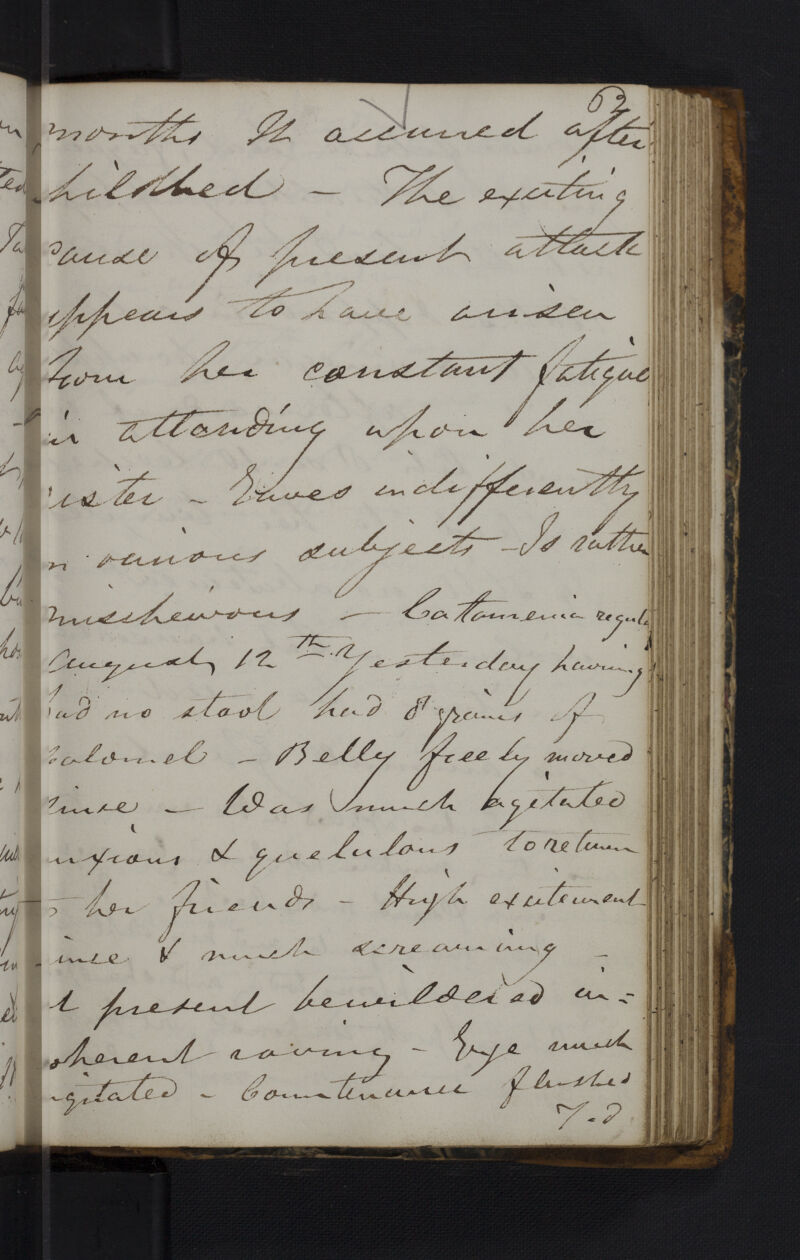 62
months It occurred after
hildbed – The exciting
cause of present attack
appears to have arisen
from her constant fatigue
in attending upon her
sister – Eaves indifferently
n various subjects – Is rather
mischeivous – Catamenia regula
August 12th Yesterday having
had no stool had 8 grains of
calomel – Belly freely moved
since – Was much agitated
anxious & quelulous to return
to her friends – High excitement
since & much screaming –
t present bewildered in=
oherent raving – Eye much
agitated – Countenance flushed